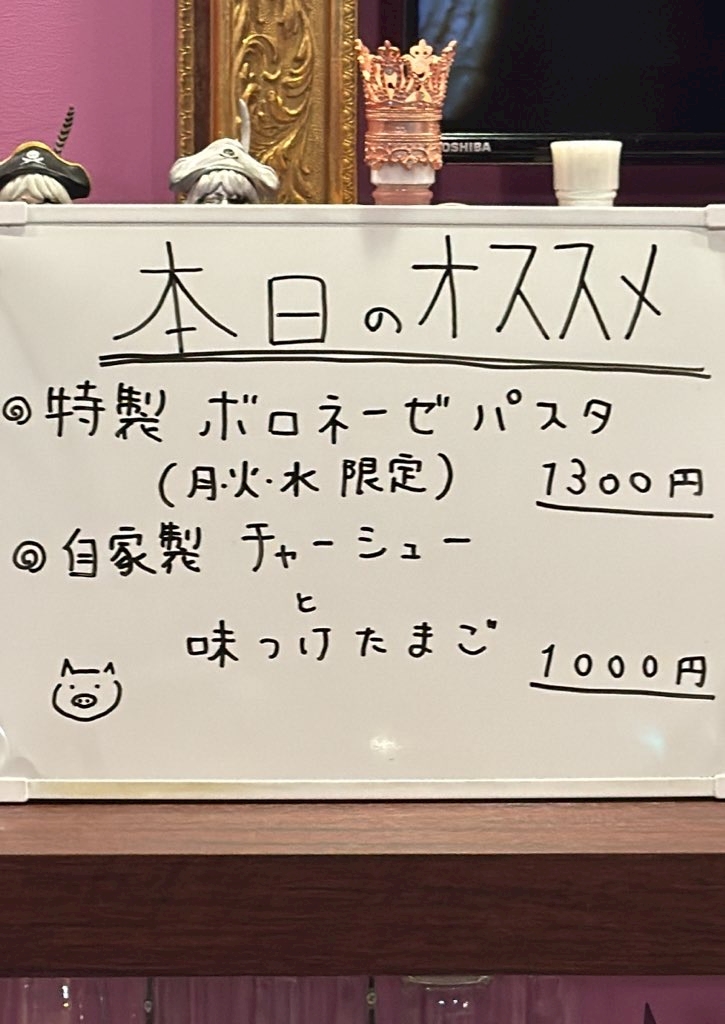 TOSHIBA
本日のオススメ
特製 ボロネーゼ パスタ
(月・火・水 限定) 1300円
自家製 チャーシュー
と
味つけたまご 1000円